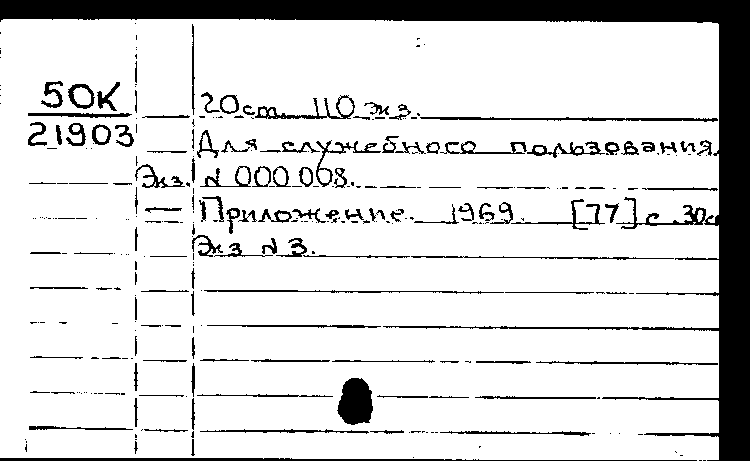 50К
21903
20 ст. 110 экз.
Для служебного пользования.
Экз. N 000 008.
— Приложение. 1969. [77] с. 30с
Экз N 3.